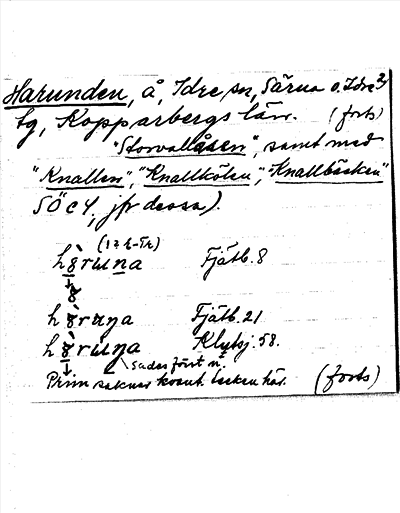 Harunden, å, Idre sn, Särna o. Idre 2/
tg, Kopparbergs län. (forts)
"Storvallåsen", samt med
"Knallen", "Knallkölen", "Knallbäcken"
SÖCH, jfr dessa).
Fjätb. 8
Fjätb. 21
Klutsj. 58.
Sades först n.
Prim saknar kvant. tecken här. (forts)